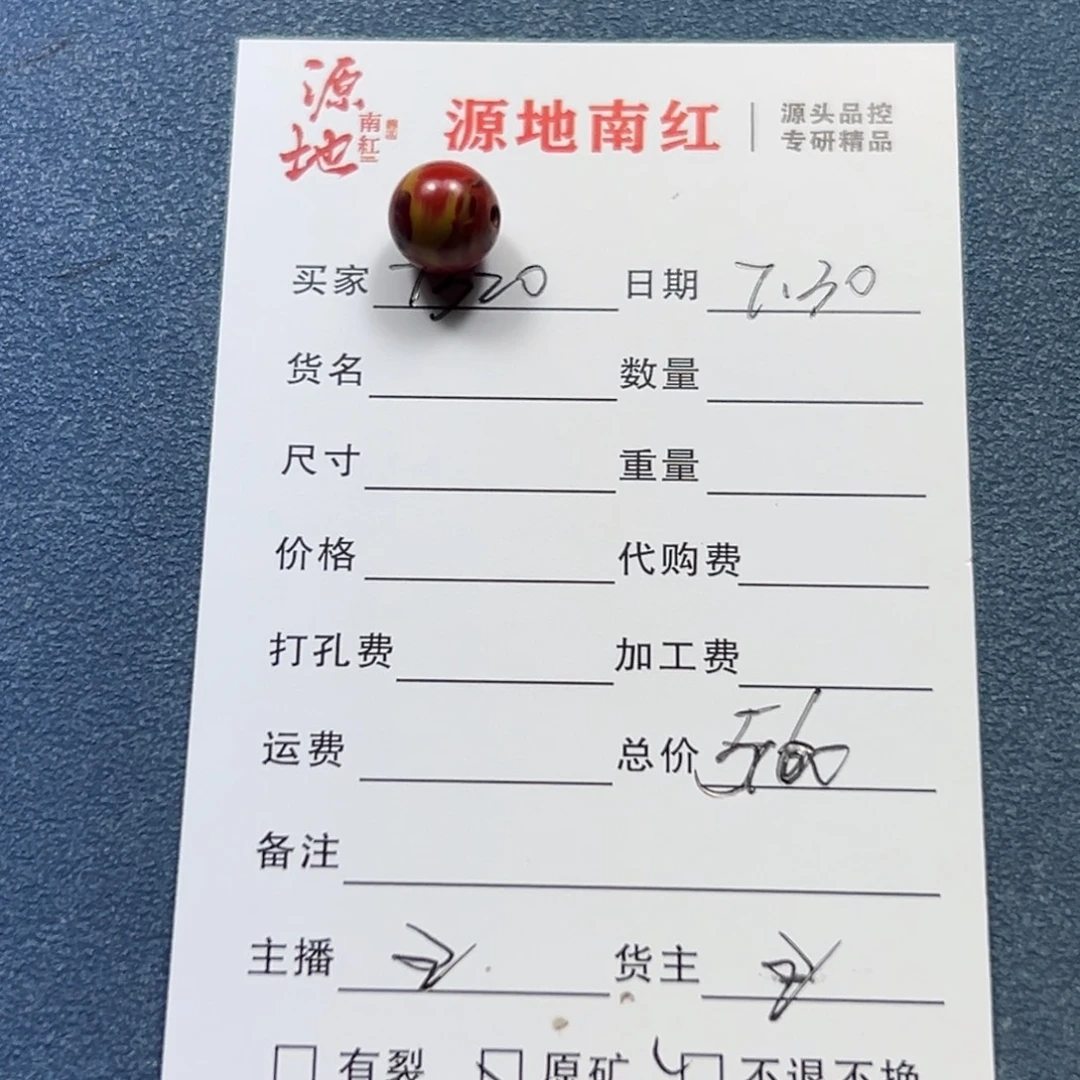 源地
南红
源地南红
源头品控
专研精品
买家 日期 7.30
货名 数量
尺寸 重量
价格 代购费
打孔费 加工费
运费 总价 560
备注
主播 货主
有裂 原矿 不退不换